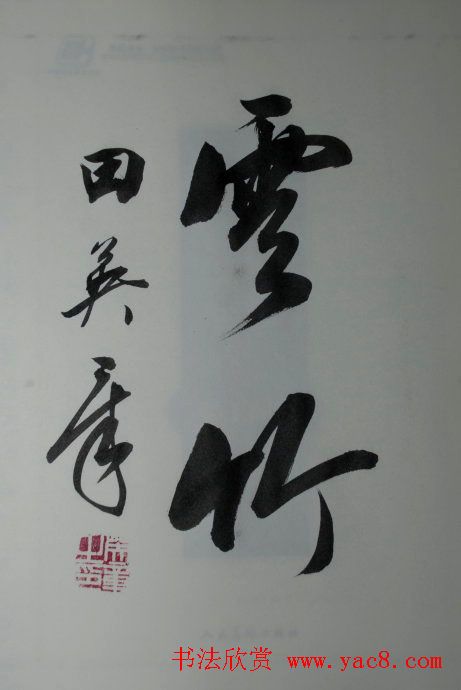 雲竹
田英章
书法欣赏 www.yac8.com